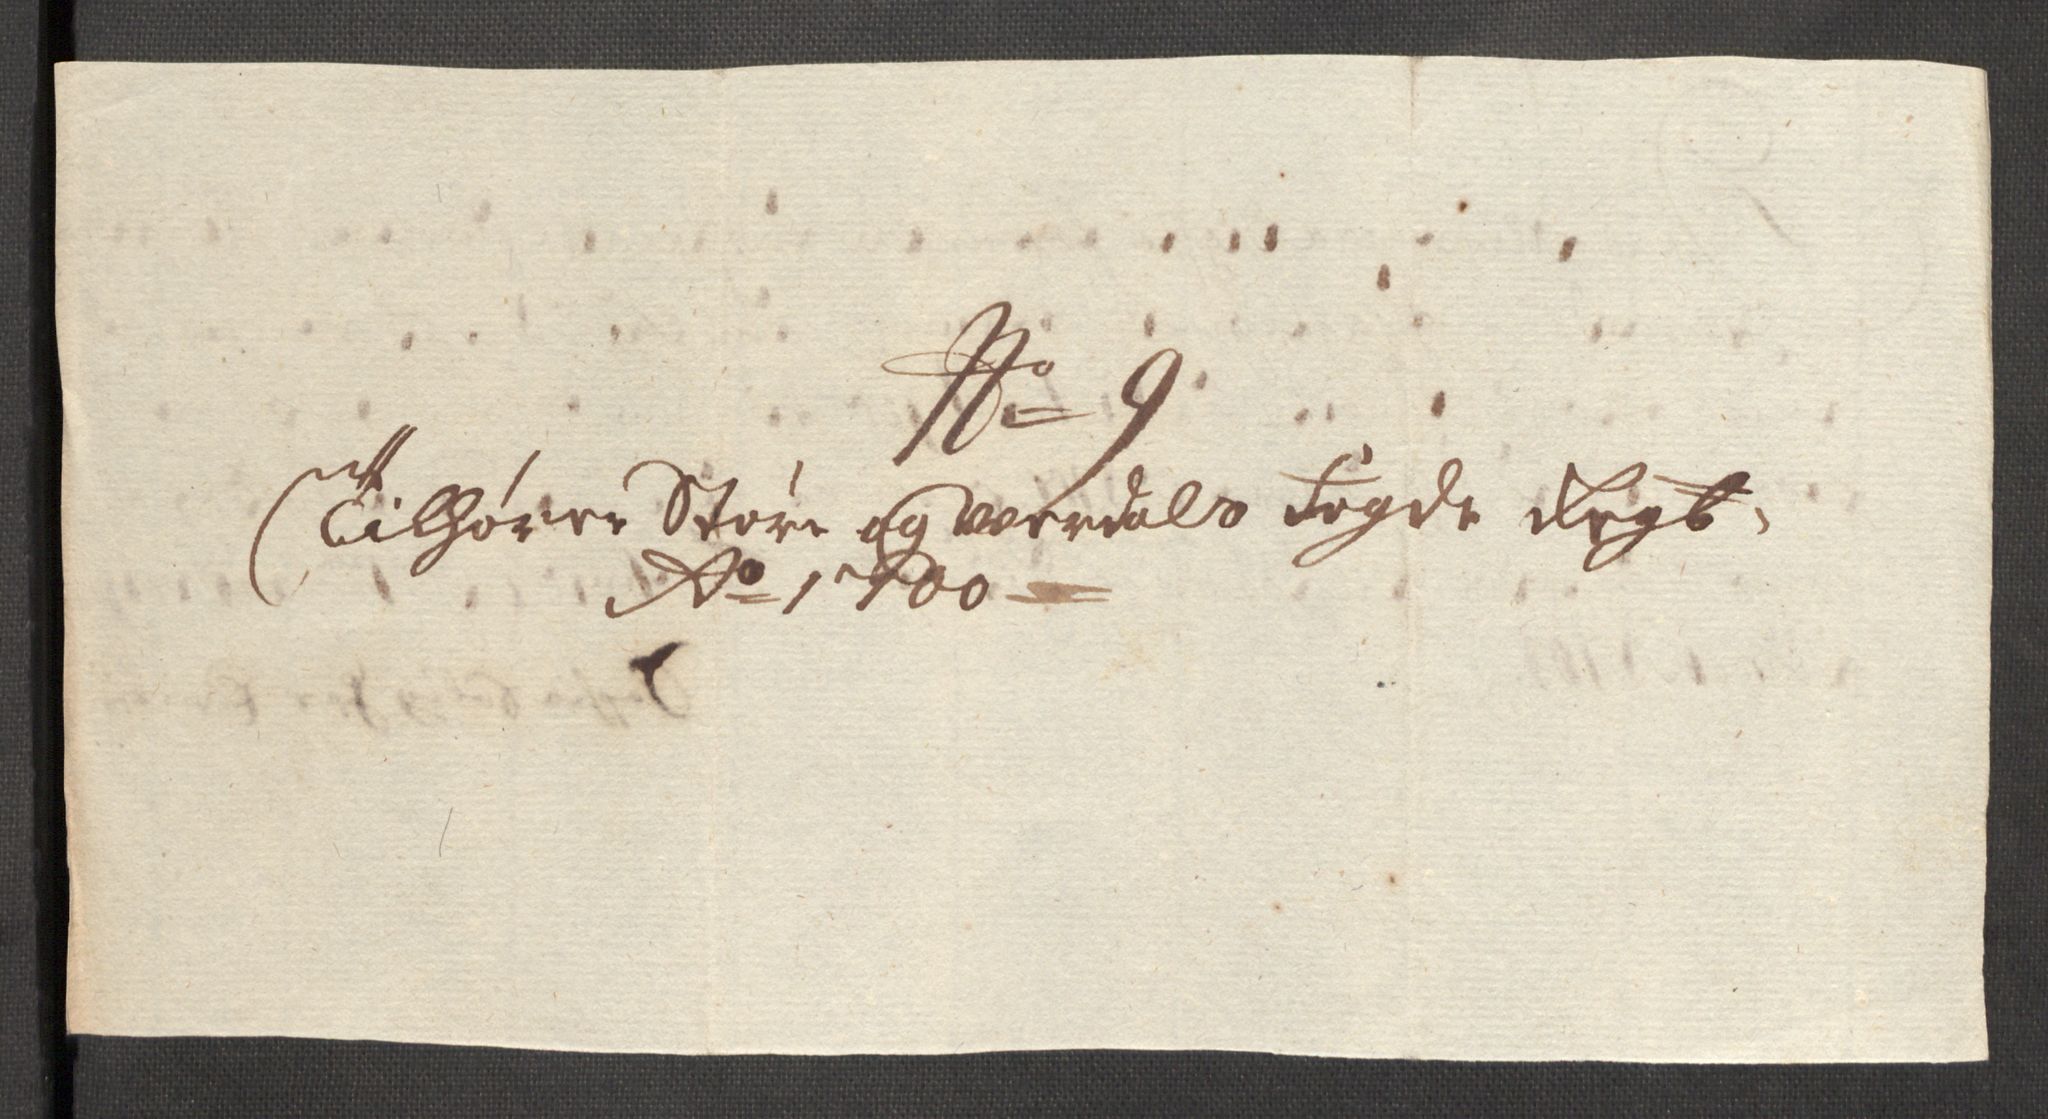 No 9
Tilhører Stør og werdals Fogde Regb.
Ao 1700